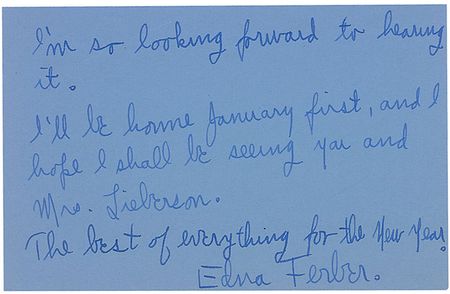 I'm so looking forward to hearing
it.
I'll be home January first, and I
hope I shall be seeing you and
Mrs. Lieberson.
The best of everything for the New Year.
Edna Ferber.